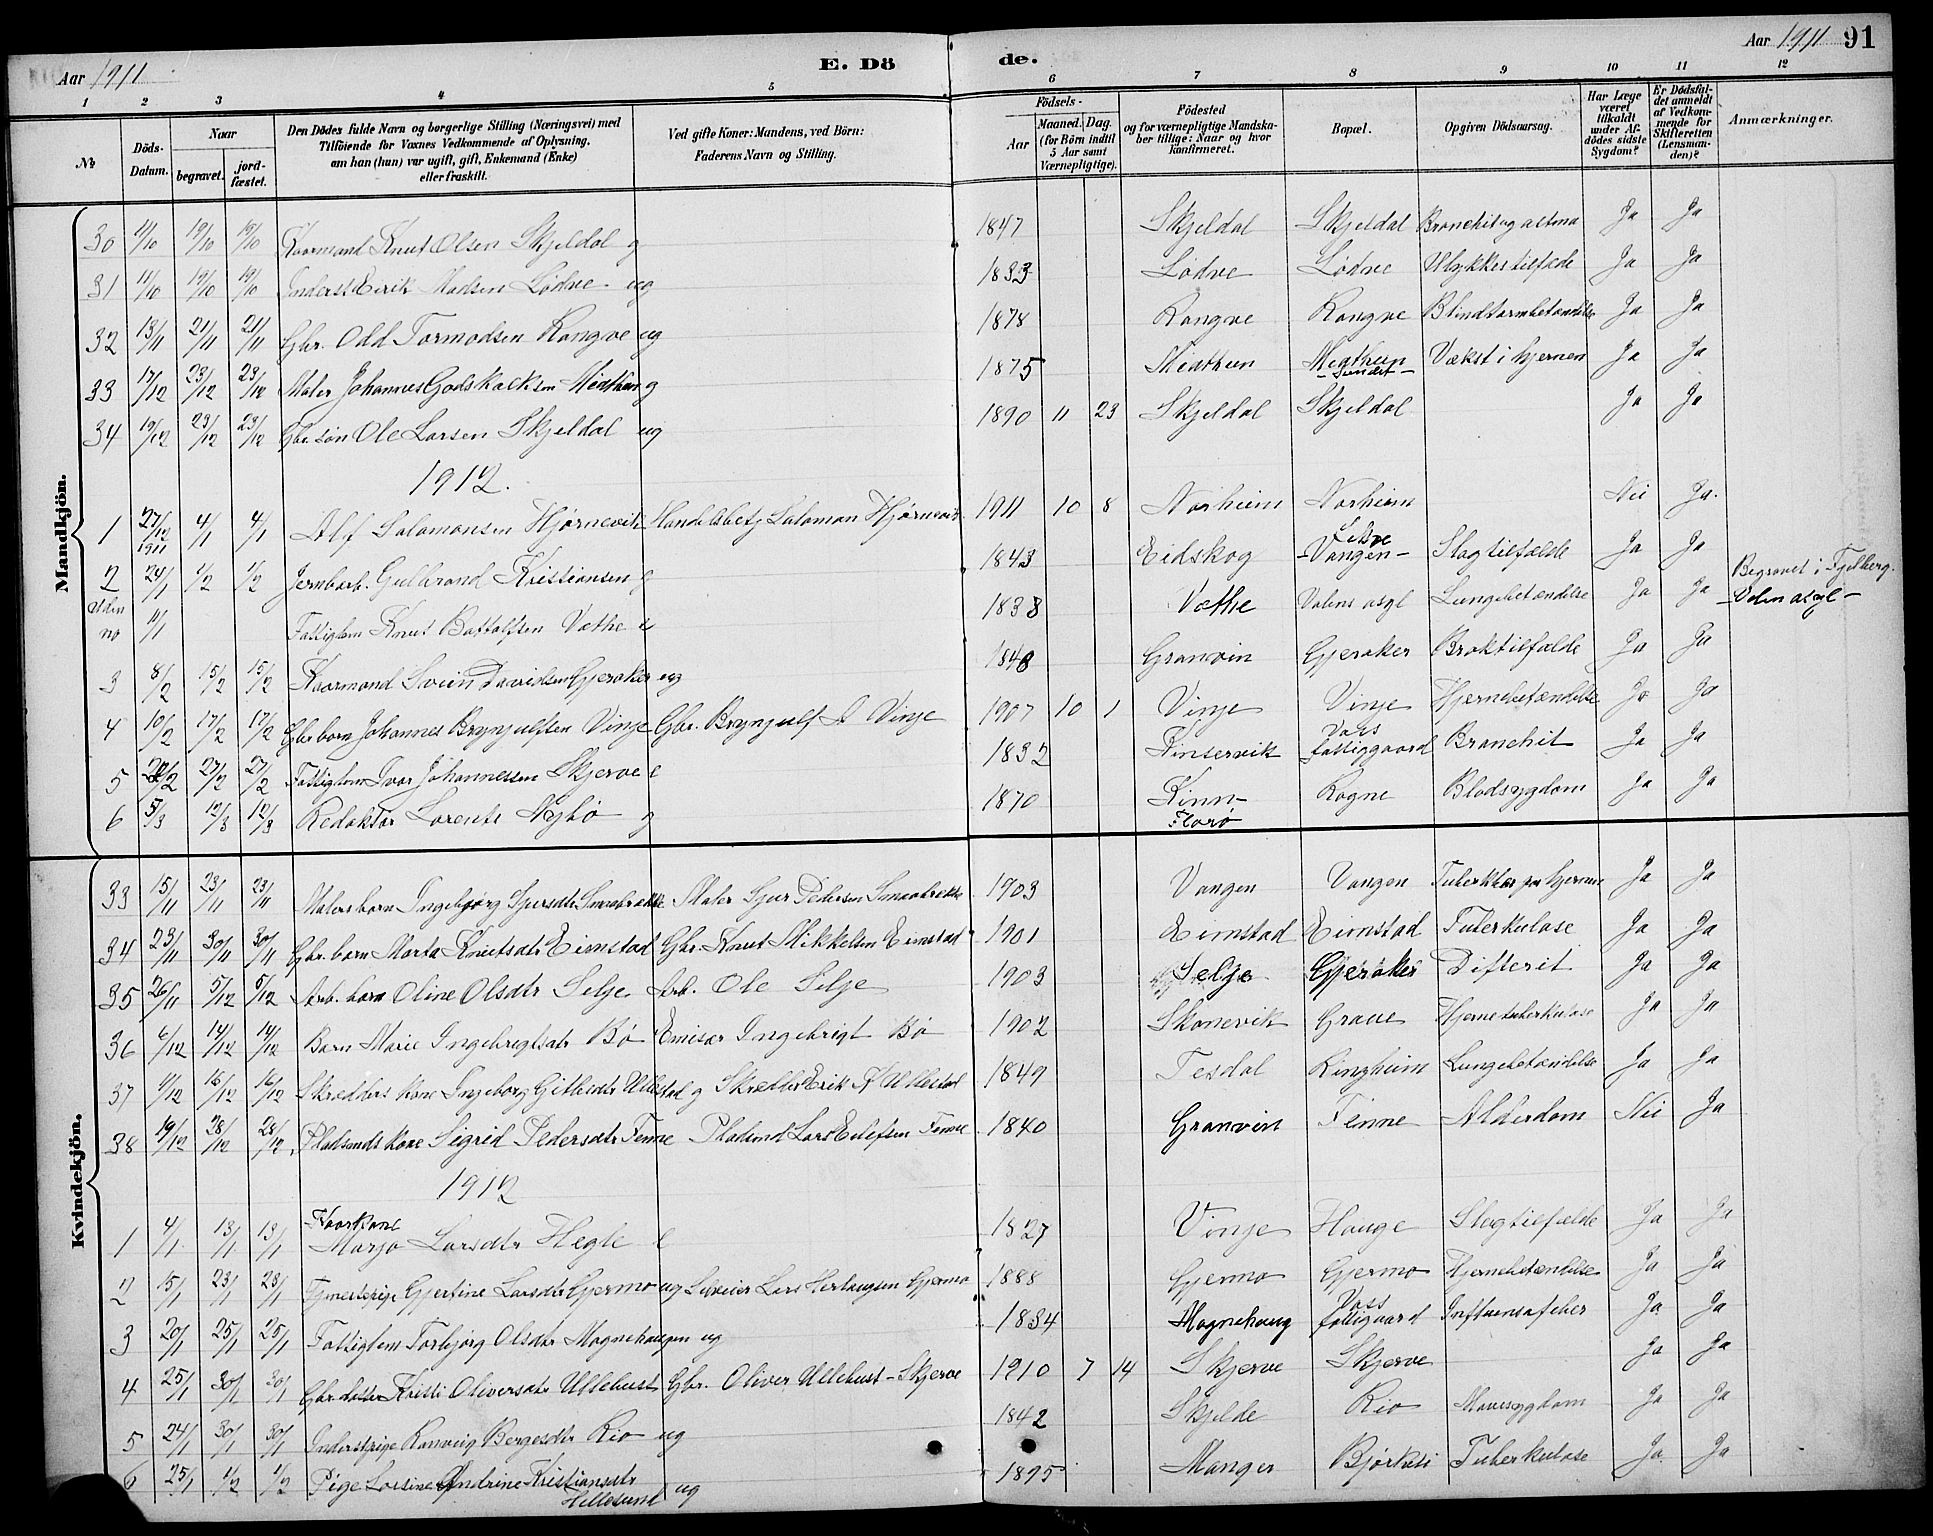 Aar 1911
E. Dö
de.
Aar 1911 91
1 2 3 4 5 6 7 8 9 10 11 12
No
Döds-Datum.
Naar
begravet.
jord-fæstet.
Den Dödes fulde Navn og borgerlige Stilling (Næringsvei) med
Tilföiende for Voxnes Vedkommende af Oplysning,
om han (hun) var ugift, gift, Enkemand (Enke)
eller fraskilt.
Ved gifte Koner: Mandens, ved Börn:
Faderens Navn og Stilling.
Födsels-
Aar
Maaned. Dag.
(for Börn indtil
5 Aar samt
Værnepligtige).
Födested
og for værnepligtige Mandska-
ber tillige: Naar og hvor
konfirmeret.
Bopæl.
Opgiven Dödsaarsag.
Har Læge
været
tilkaldt
under Af-
dödes sidste
Sygdom?
Er Dödsfal-
det anmeldt
af Vedkom-
mende for
Skifteretten
(Lensman-
den)?
Anmærkninger.
Mandkjön.
30 11/10 19/10 19/10 Kaarmand Knut Olsen Skjeldal g 1847 Skjeldal Skjeldal Bronchit og astma Ja Ja
31 11/10 19/10 19/10 Inderst Eirik Madsen Lødve - ug 1833 Lødve Lødve Ulykkestilfælde Ja Ja
32 13/11 21/11 21/11 Gbr. Odd Tormodsen Rongve ug 1878 Rongve Rongve Blindtarmbetændelse Ja Ja
33 17/12 23/12 23/12 Maler Johannes Godskalksen Midthun g 1875 Midthun Midthun Vækst i hjernen Ja Ja
34 19/12 23/12 23/12 Gbr. søn Ole Larsen Skjeldal ug 1890 11 23 Skjeldal Skjeldal Ja Ja
1912.
1 27/12 1911 4/1 4/1 Alf Salomonsen Hjørnevik Handelsbetj Salomon Hjørnevik 1911 10 8 Norheim Norheim Nei Ja.
2 24/1 1/2 1/2 Jernbarb. Gulbrand Kristiansen g 1843 Eidskog -Vangen- Slagtilfælde Ja Ja
Uden no 11/1 Fattiglem Knut Battolfsen Væthe e 1838 Væthe Valens asyl Lungebetændelse Ja Ja Begravet i Fjelberg. -Valen asyl-
3 8/2 15/2 15/2 Kaarmand Svein Davidsen Gjeraker ug 1848 Granvin Gjeraker Broktilfælde Ja Ja
4 10/2 17/2 17/2 Gbr. barn Johannes Brynjulfsen Vinje Gbr. Brynjulf A Vinje 1907 10 1 Vinje Vinje Hjernebetændelse Ja Ja
5 20/2 27/2 27/2 Fattiglem Ivar Johannessen Skjerve e 1832 Kinservik Vass fattiggaard Bronchit Ja Ja
6 5/3 12/3 12/3 Redaktør Lorents Nybø g 1870 Kinn- Florø Rogne Blodsygdom Ja Ja
Kvindekjön.
33 15/11 23/11 23/11 Malers barn Ingebjørg Sjursdtr Smaabrekke Maler Sjur Pedersen Smaabrekke 1903 Vangen Vangen Tuberkler paa hjernen Ja Ja
34 23/11 30/11 30/11 Gbr. barn Marta Knutsdtr Eimstad Gbr. Knut Mikkelsen Eimstad 1901 Eimstad Eimstad Tuberkulose Ja Ja
35 26/11 5/12 5/12 Arb. barn Oline Olsdtr Selje Arb. Ole Selje 1903 Selje Gjeraker Difterit Ja Ja
36 6/12 14/12 14/12 Barn Marie Ingebrigtsdtr Bø Emisær Ingebrigt Bø 1902 Skonevik Graue Hjernetuberkulose Ja Ja
37 9/12 16/12 16/12 Skrædders kone Ingeborg Gitlesdtr Ullestad g Skrædder Erik A Ullestad 1849 Tesdal Ringheim Lungebetændelse Ja Ja
38 19/12 28/12 28/12 Pladsmds kone Sigrid Pedersdtr Fenne Pladsmd Lars Eilefsen Fenne 1840 Granvin Fenne Alderdom Nei Ja
1912
1 4/1 13/1 13/1 Kaarkone Marjo Larsdtr Hegle e 1827 Vinje Hauge Slagtilfælde Ja Ja
2 15/1 23/1 23/1 Tjenestepige Gjertine Larsdtr Gjermo ug Selveier Lars Herlaugsen Gjermo 1888 Gjermo Gjermo Hjernebetændelse Ja Ja
3 20/1 25/1 25/1 Fattiglem Torbjørg Olsdtr Mognehaugen ug 1834 Mognehaug Voss fattiggaard Influensafeber Ja Ja
4 25/1 30/1 30/1 Gbr. datter Kristi Oliversdtr Ullehust Gbr. Oliver Ullehust - Skjerve 1910 7 14 Skjerve Skjerve Ja Ja
5 24/1 30/1 30/1 Inderstpige Ranveig Bergesdtr Rio ug 1842 Skjelde Rio Mavesygdom Ja Ja
6 25/1 1/2 1/2 Pige Larsine Andrine Kristiansdtr Hillesund ug 1895 Manger Bjørkeli Tuberkulose Ja Ja